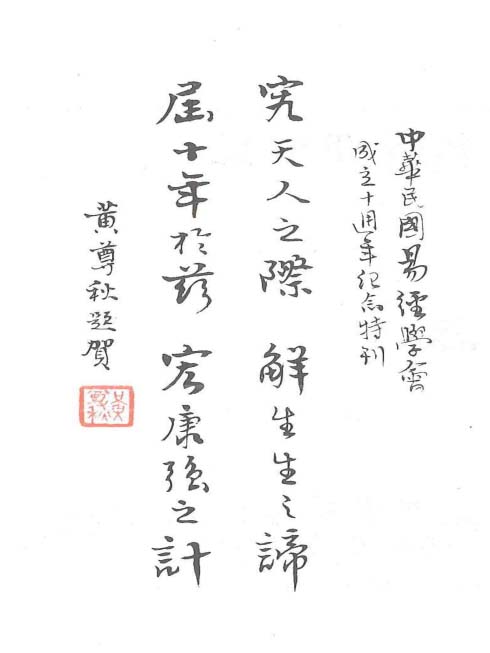 中華民國易經學會
成立十週年紀念特刊
究天人之際 解生生之諦
屆十年於茲 宏康強之計
黃尊秋題賀
黃尊秋